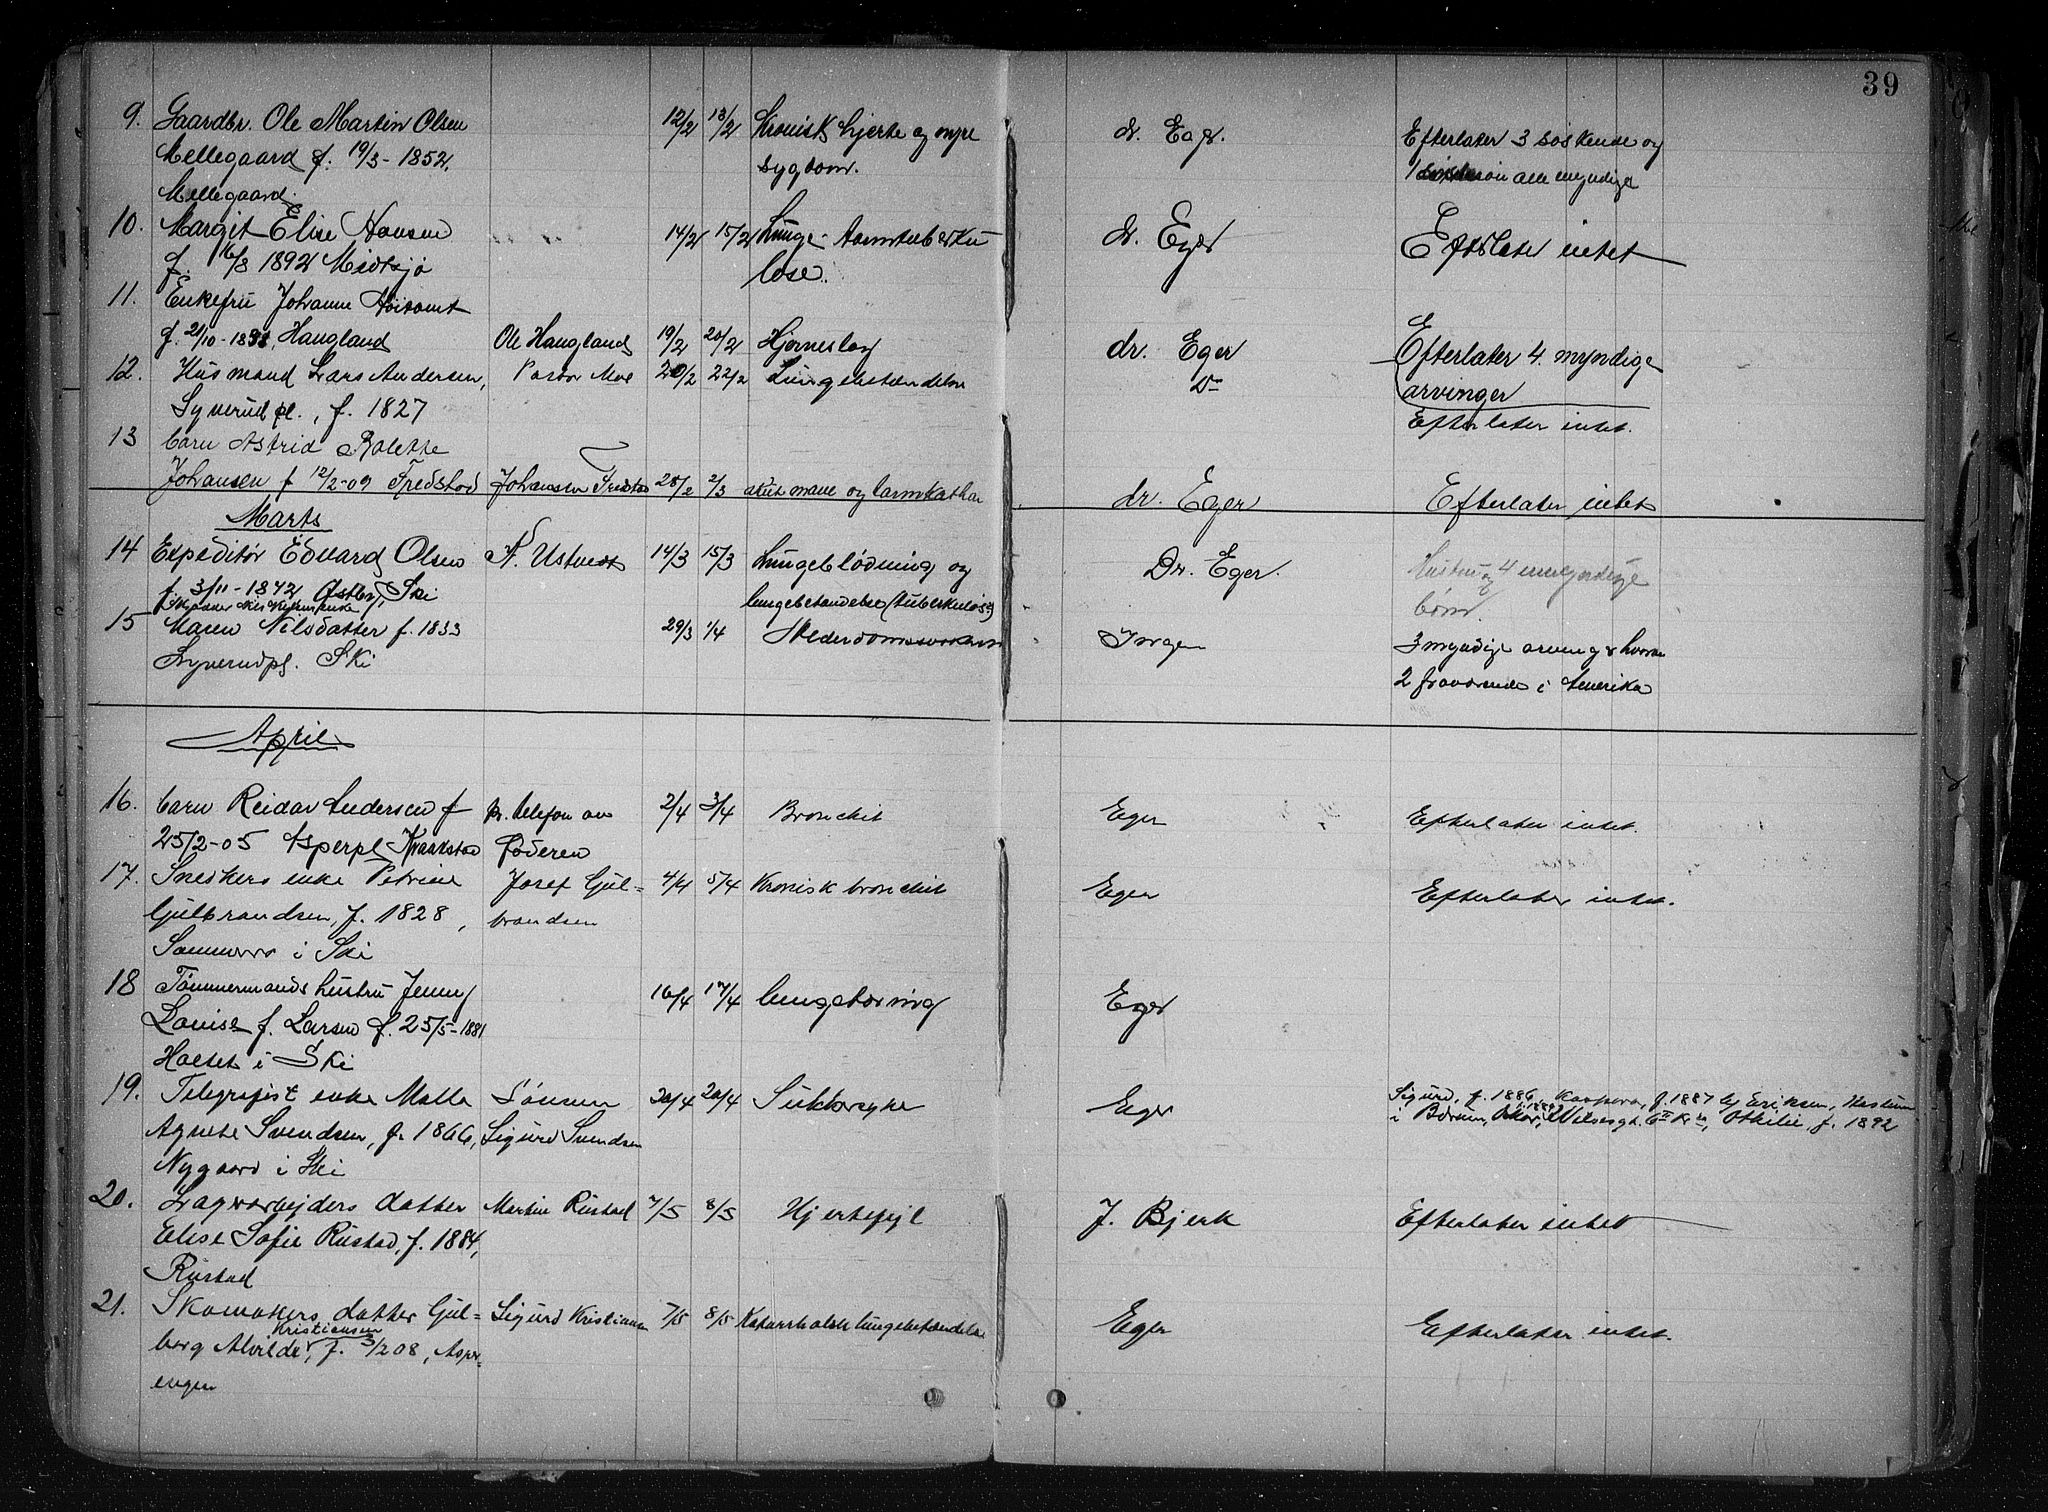 39
9. Gaardbr. Ole Martin Olsen 12/2 13/2 Kronisk hjerte og nyre dr. Eger. Efterlater 3 søskende og
Mellegaard f. 19/3-1852, sygdom. 1 alle myndige
Mellegaard.
10. Margit Elise Hansen 14/2 15/2 Lunge- tarmtuberku dr. Eger Efterlater intet
f. 16/8 1892 Midtsjø løse.
11. Enkefru Johanne
f. 21/10-1838, Haugland Ole Haugland 19/2 20/2 Hjerneslag dr. Eger Efterlater 4 myndige
12. Husmand Lars Andersen, Pastor Moe 20/2 22/2 Lungebetændelse Do arvinger
Syverud pl., f. 1827 Efterlater intet.
13 barn Astrid Rolette
Johansen f 12/2-09 Fredstad Johansen Fredstad 28/2 2/3 akut mave og tarmkathar dr. Eger Efterlater intet
Marts
14 Expeditør Edvard Olsen N. Ustvedt 14/3 15/3 Lungeblødning og Dr. Eger. Hustru og 4 umyndige
f. 3/11-1872 Østby, Ski lungebetændelse (tuberkuløs) børn.
15 Maren Nilsdatter f. 1833 29/3 1/4 Alderdomssvækkelse Ingen 3 myndige arvinger hvorav
Syverudpl. Ski 2 fraværende i Amerika
April
16. barn Reidar Andersen f pr. telefon av 2/4 3/4 Bronchit Eger Efterlater intet.
25/2-05 Asperpl Kraakstad Foderen
17. Snekkers enke Petrine Josef Gul= 4/4 5/4 Kronisk bronchit Eger Efterlater intet.
Gulbrandsen, f. 1828, brandsen
Sommerro i Ski
18 Tømmermands hustru Jenny 16/4 17/4 lungetæring Eger
Louise f. Larsen f. 25/5-1881
Holtet i Ski
19. Telegrafist enke Malla Sønnen 20/4 20/4 Sukkersyke Eger Sigurd, f. 1886, Kaspara, f. 1887 g Eriksen, Hestum
Agnete Svendsen, f. 1866, Sigurd Svendsen i Bærum, Oskar, f. 1889, Nilsesgt. 6 Kr.a, Othilie, f. 1892
Nygaard i Ski
20. Lagerarbejders datter Martin Rustad 7/5 8/5 Hjertefejl J. Bjerk Efterlater intet
Elise Sofie Rustad, f. 1884,
Rustad
21. Skomakers datter Gul= Sigurd Kristiansen 7/5 8/5 Katarrhalsk lungebetændelse Eger Efterlater intet.
Kristiansen
borg Alvilde, f. 3/2 08, Asper=
engen